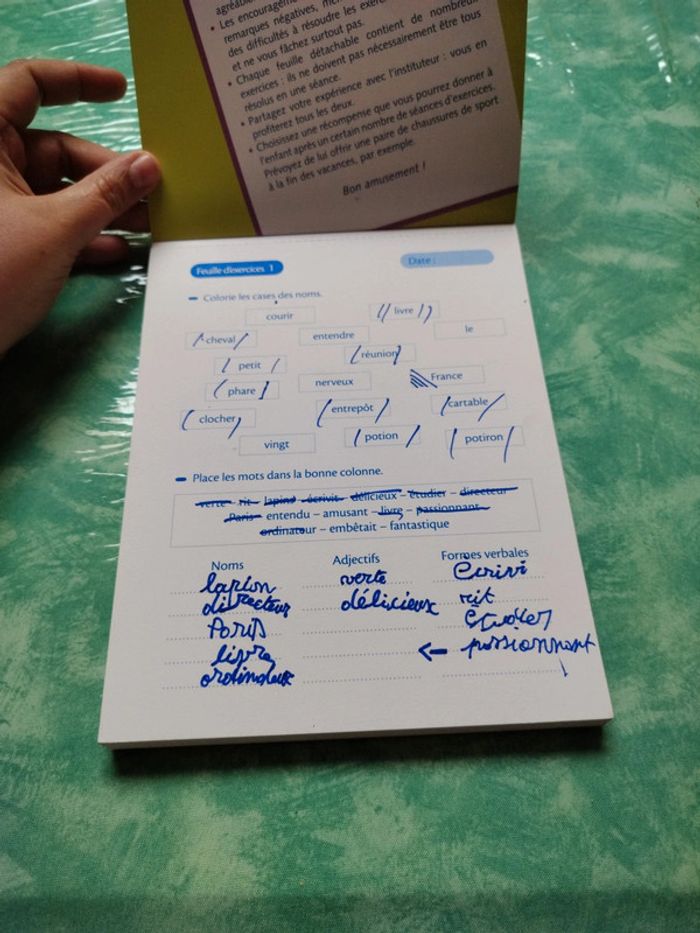 agréable
• Les encouragem
remarques négatives, mer
des difficultés à résoudre les exer
et ne vous fâchez surtout pas.
• Chaque feuille détachable contient de nombreux
exercices : ils ne doivent pas nécessairement être tous
résolus en une séance.
• Partagez votre expérience avec l'instituteur : vous en
profiterez tous les deux.
• Choisissez une récompense que vous pourrez donner à
l'enfant après un certain nombre de séances d'exercices.
Prévoyez de lui offrir une paire de chaussures de sport
à la fin des vacances, par exemple.
Bon amusement !
Feuille d'exercices 1 Date :
Colorie les cases des noms.
courir livre
cheval entendre le
petit réunion
phare nerveux France
clocher entrepôt cartable
vingt potion potiron
Place les mots dans la bonne colonne.
verte – rit – lapins – écrivit – délicieux – étudier – directeur
Paris – entendu – amusant – livre – passionnant
ordinateur – embêtait – fantastique
Noms Adjectifs Formes verbales
verte
directeur délicieux rit
Paris
passionnant